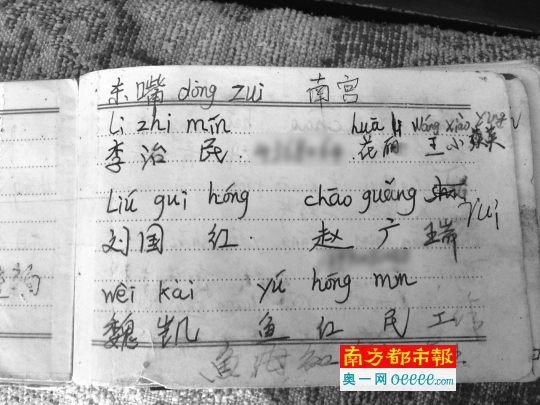 东嘴 dōng zuǐ 南宫
li zhi mín huā li wáng xiǎo
李 治 民. 花丽 王小英
Liú gui hóng chāo guǎng ruì
刘国 红. 赵 广. 瑞
wēi kǎi yú hóng mín
魏 凯 鱼 红 民
鱼
南方都市報
奥一网 oeeee.com